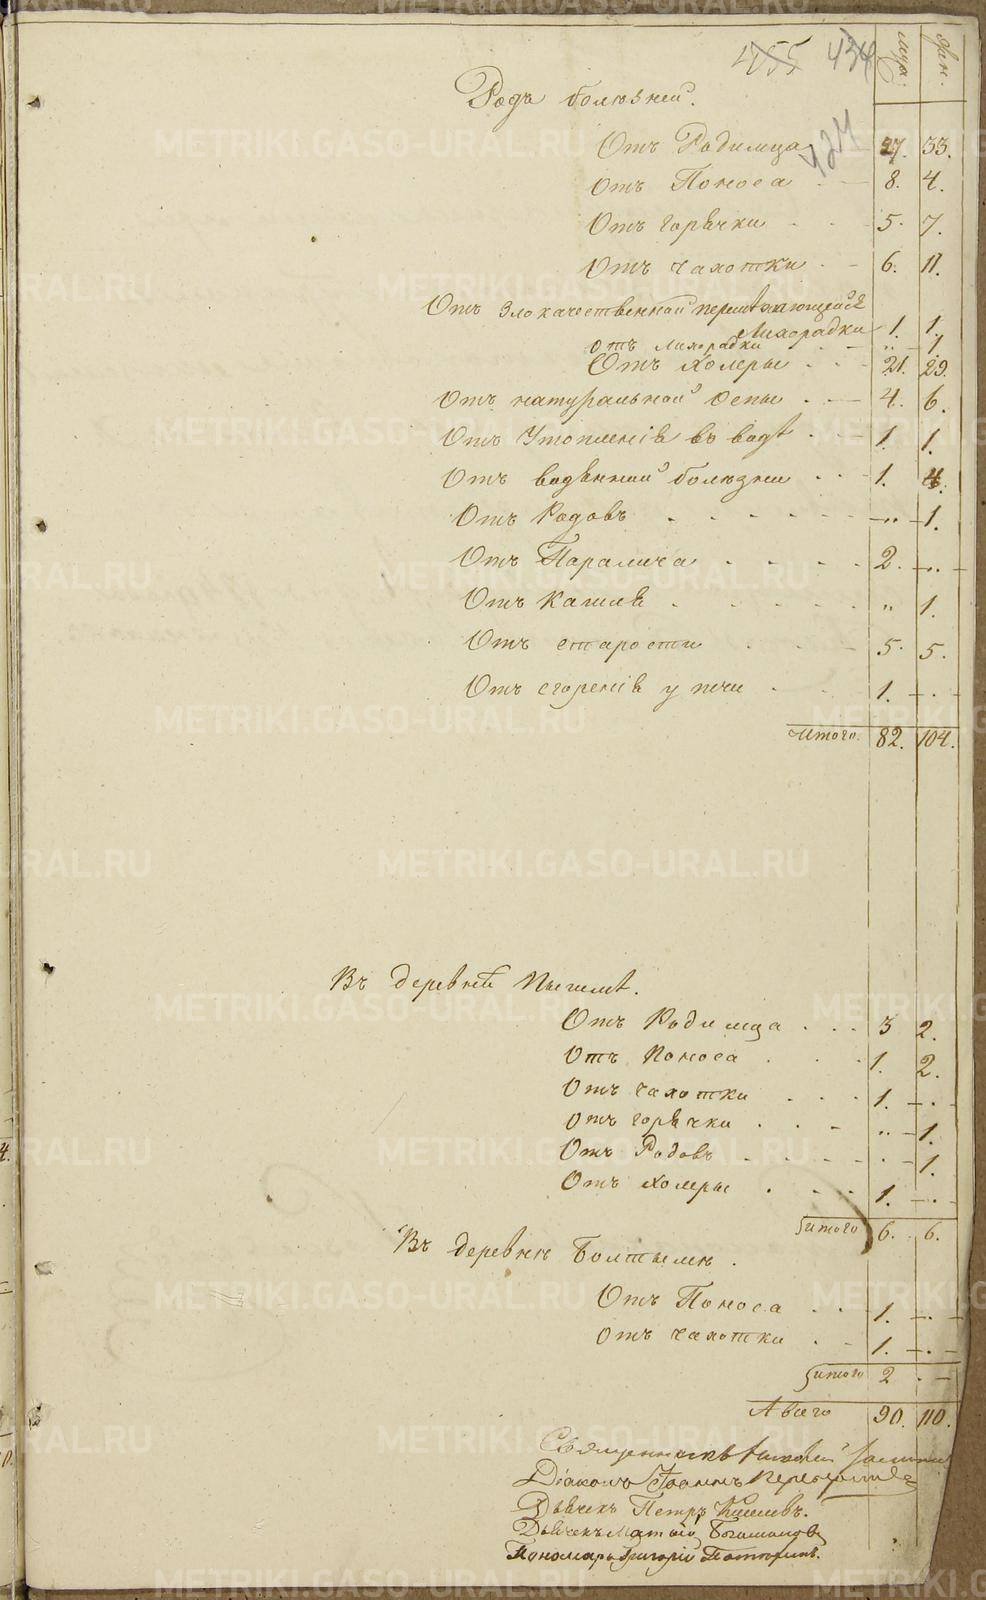 455 434
муж. жен.
424
Родъ болѣзней.
Отъ Родимца 27. 33.
Отъ Поноса 8. 4.
Отъ горячки 5. 7.
Отъ чахотки 6. 11.
Отъ злокачественной перемѣжающейся
Лихорадки 1. 1.
отъ лихорадки „ 1.
Отъ Холеры 21. 29.
Отъ натуральной Оспы 4. 6.
Отъ Утопленія въ водѣ 1. 1.
Отъ водяной болѣзни 1. 4.
Отъ Родовъ „ 1.
Отъ Паралича 2. „
Отъ Кашля „ 1.
Отъ старости 5. 5.
Отъ сгоренія у печи 1. „
Итого. 82. 104.
Въ деревнѣ Пышмѣ.
Отъ Родимца 3 2.
Отъ Поноса 1. 2.
Отъ чахотки 1.
отъ горячки „ 1.
Отъ Родовъ 1.
Отъ Холеры 1.
итого 6. 6.
Въ деревнѣ
Отъ Поноса 1.
Отъ чахотки 1.
итого 2
А всего 90. 110.
Священникъ
Діаконъ Іоаннъ
Дьячекъ Петръ
Дьячекъ
Пономарь Григорій
METRIKI.GASO-URAL.RU